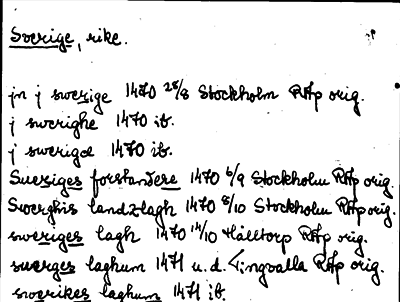 Sverige, rike.
jn j swerige 1470 28/8 Stockholm RAp orig.
j swerighe 1470 ib.
j swerigæ 1470 ib.
Sueriges forstandere 1470 6/9 Stockholm RAp orig.
Swerghis landzlagh 1470 8/10 Stockholm RAp orig.
sweriges lagh 1470 14/10 Hälltorp RAp orig.
suerges laghum 1471 u.d. Tingvalla RAp orig.
swerikes laghum 1471 ib.